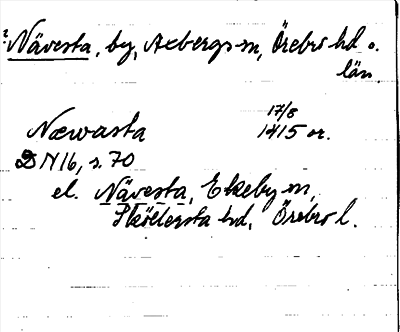 ? Nävesta, by, Axbergs sn, Örebro hd o.
län.
Næwasta 17/8 1415 or.
DN 16, s. 70
el. Nävesta, Ekeby sn,
Sköllersta hd, Örebro l.